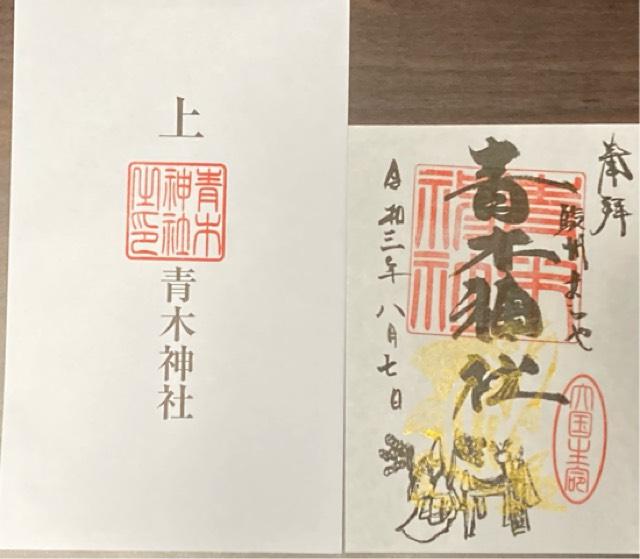 上
青木
神社
之印
青木神社
奉拝
駿州
青木神社
青木
神社
令和三年八月七日
大国主命